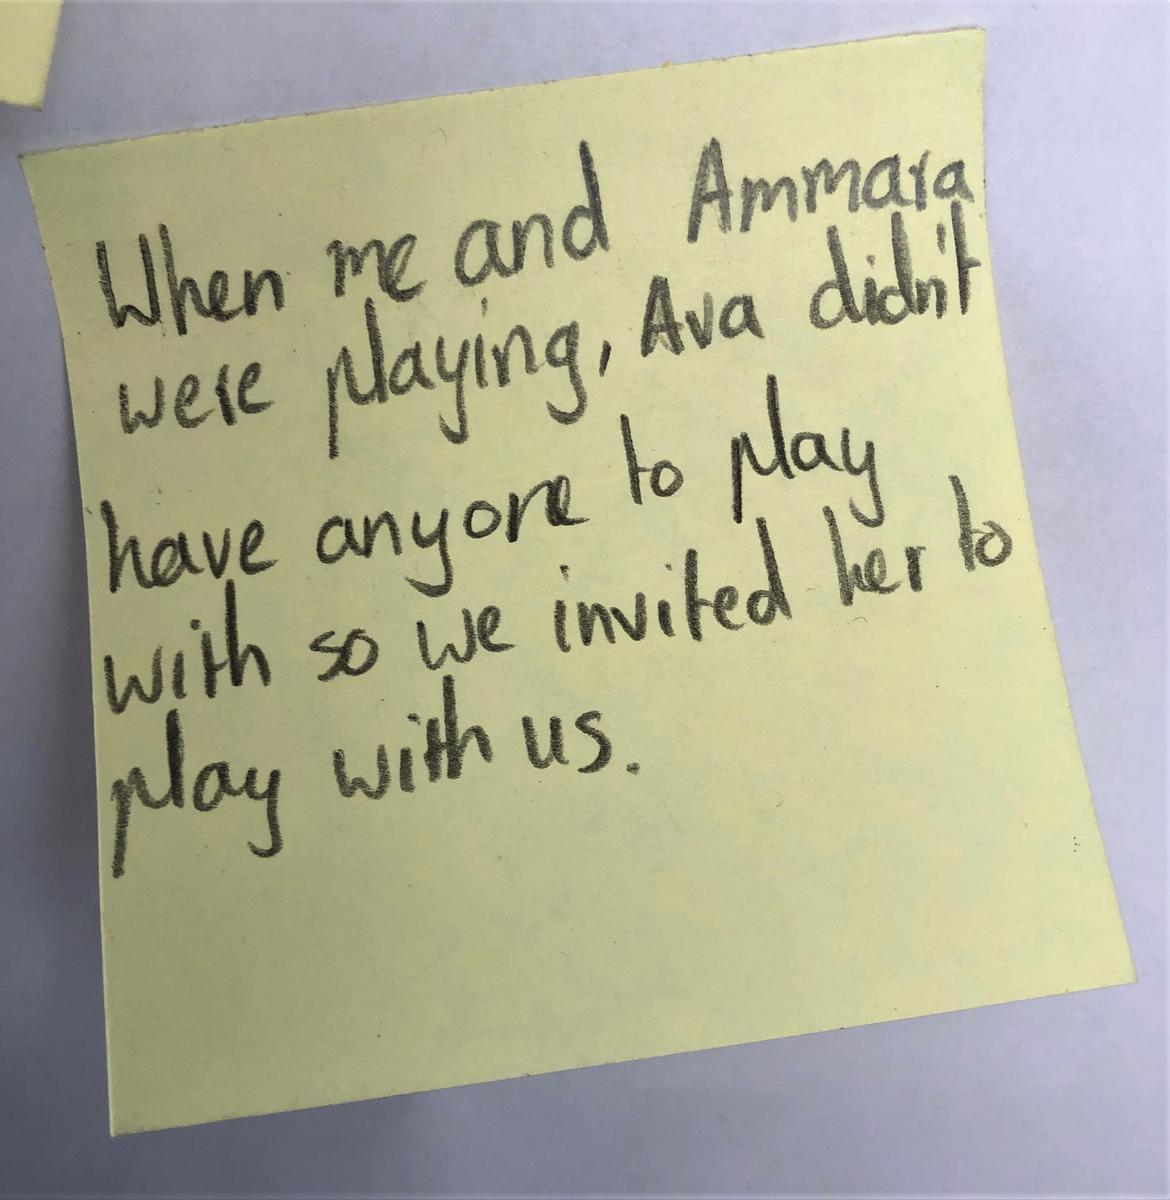 When me and Ammara
were playing, Ava didn't
have anyone to play
with so we invited her to
play with us.